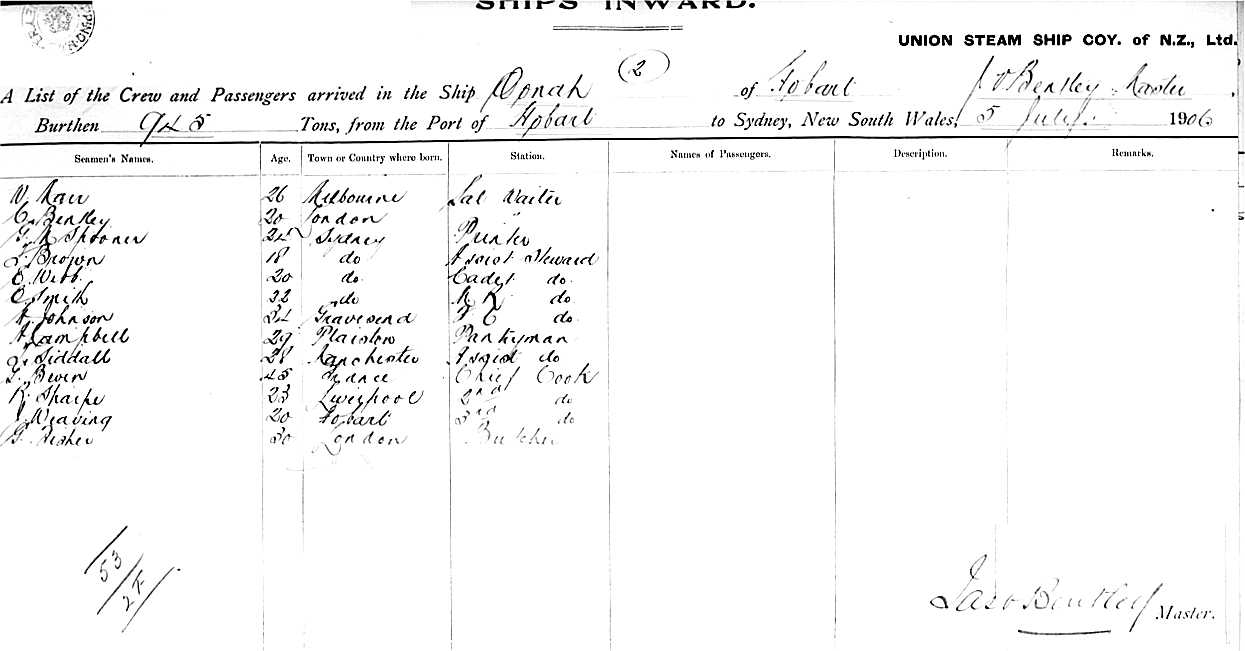 SHIPS INWARD.
UNION STEAM SHIP COY. of N.Z., Ltd.
(2)
A List of the Crew and Passengers arrived in the Ship Oonah of Hobart J O Bentley Master
Burthen 945 Tons, from the Port of Hobart to Sydney, New South Wales, 5 July 1906
Seamen's Names. Age. Town or Country where born. Station. Names of Passengers. Description. Remarks.
W. 26 Melbourne Sal Waiter
C. Bentley 20 London "
G. M Spooner 24 Sydney
Brown 18 do Assist Steward
E Webb 20 do Cadet do
C. Smith 22 do do
A. Johnson 34 Gravesend do
A Campbell 29 Plaistow Pantryman
Siddall 28 Manchester Assist do
Bevin 45 France Chief Cook
R. Sharpe 23 Liverpool 2nd do
J Weaving 20 Hobart 3rd do
G. Fisher 30 London Butcher
53
2F
Jas O Bentley Master.